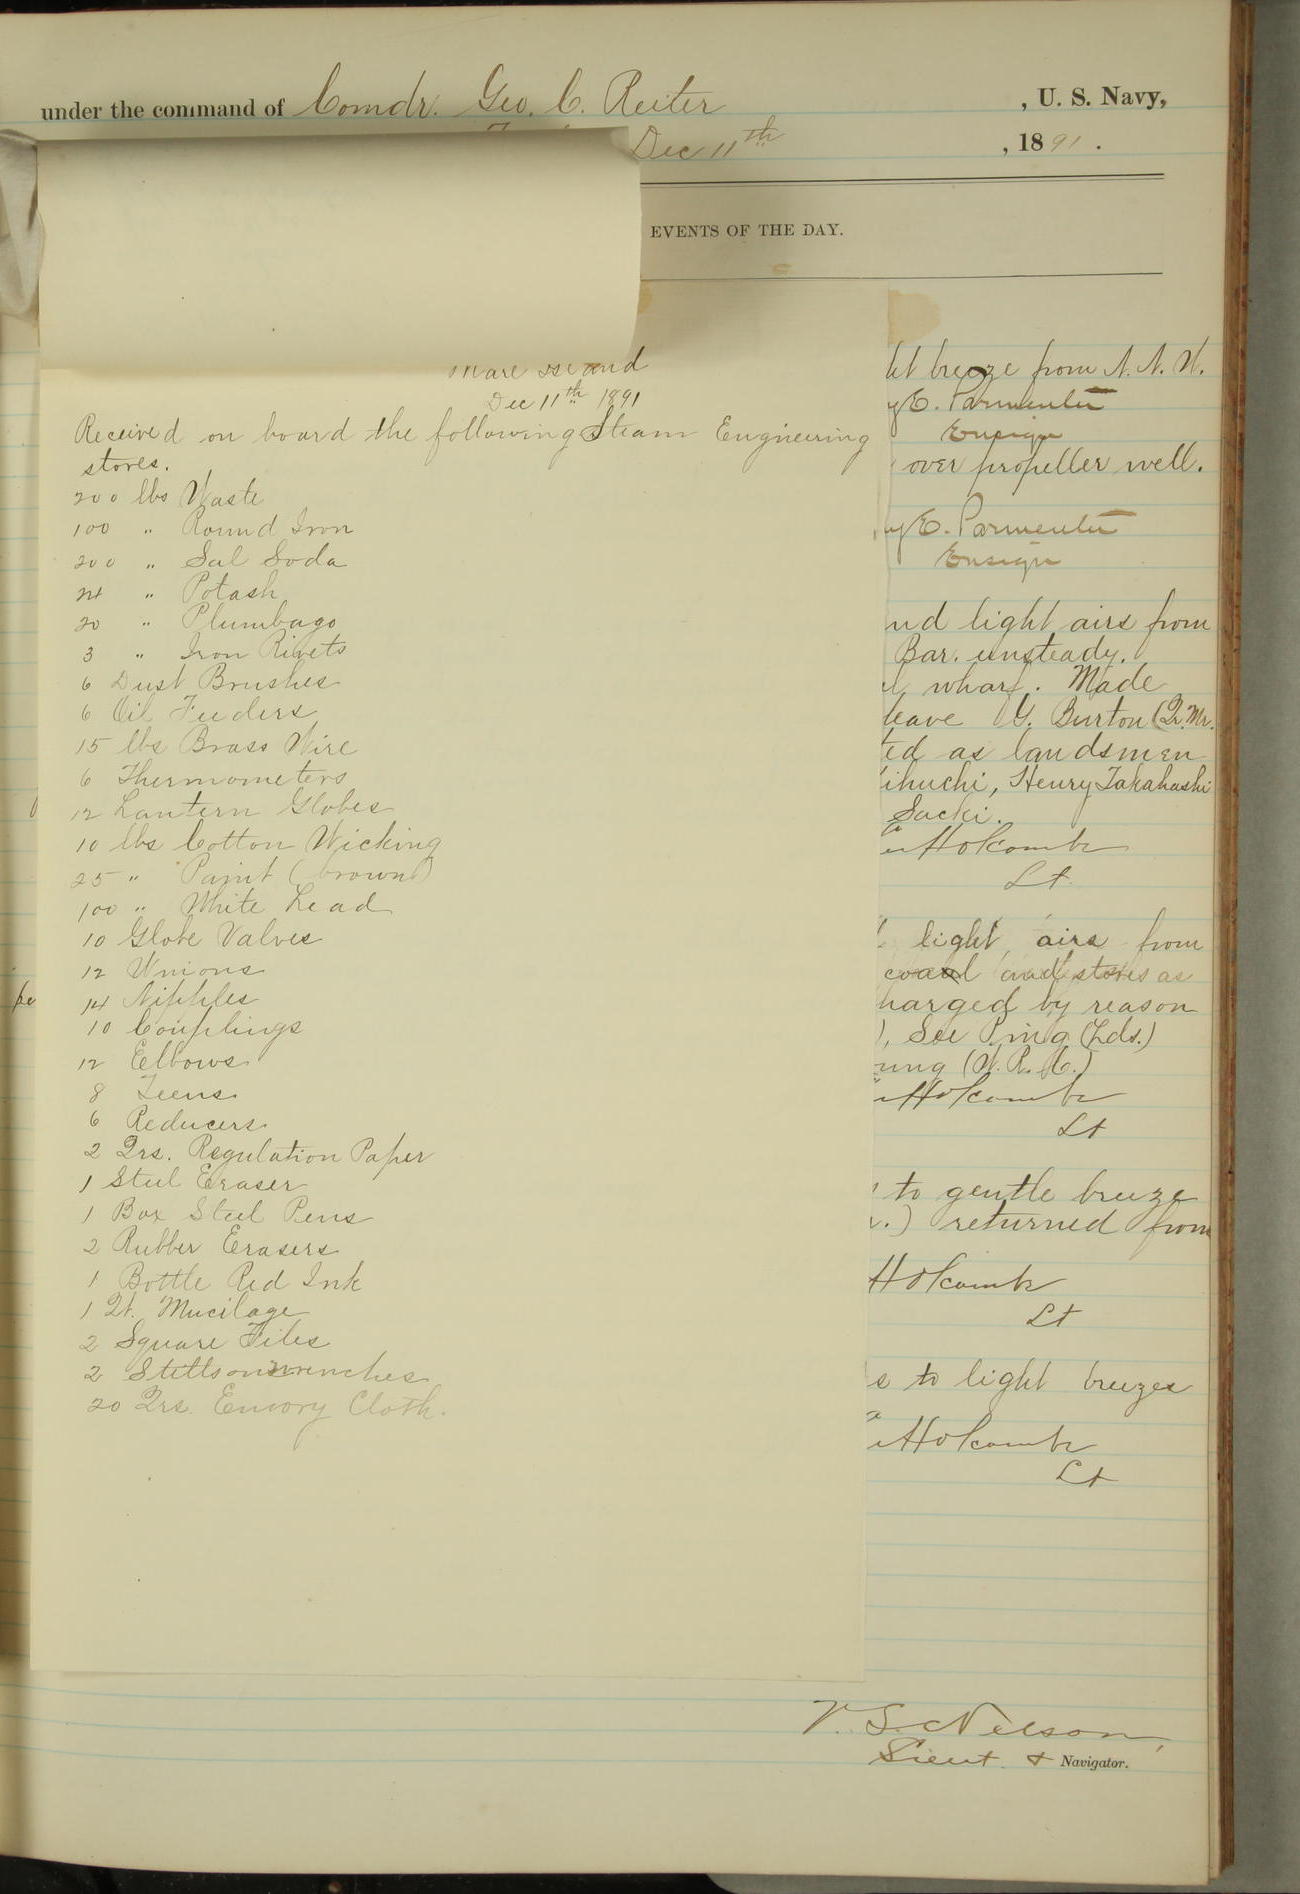 under the command of Comdr. Geo. C. Reiter , U. S. Navy,
Dec 11th , 1891.
EVENTS OF THE DAY.
Mare Island
Dec 11th 1891
Received on board the following Steam Engineering
stores.
200 lbs Waste
100 " Round Iron
200 " Sal Soda
24 " Potash
20 " Plumbago
3 " Iron Rivets
6 Dust Brushes
6 Oil Feeders
15 lbs Brass Wire
6 Thermometers
12 Lantern Globes
10 lbs Cotton Wicking
25 " Paint (brown)
100 " White Lead
10 Globe Valves
12 Unions
14 Nipples
10 Couplings
12 Elbows
8 Teens
6 Reducers
2 Qrs. Regulation Paper
1 Steel Eraser
1 Box Steel Pens
2 Rubber Erasers
1 Bottle Red Ink
1 Qt. Mucilage
2 Square Files
2 Stillson wrenches
20 Qrs. Emory Cloth.
ht breeze from N. N. W.
y E. Parmenter
Ensign
over propeller well.
y E. Parmenter
Ensign
nd light airs from
Bar. unsteady.
wharf. Made
leave G. Burton (Qr. Mr.
ted as landsmen
ihuchi, Henry Takahashi
Sacki.
Holcomb
Lt.
light airs from
coal and stores as
harged by reason
), See Ping (Lds.)
ung (W. R. C.)
Holcomb
Lt
to gentle breeze
.) returned from
Holcomb
Lt
s to light breezes
Holcomb
Lt
V. S. Nelson,
Lieut. & Navigator.